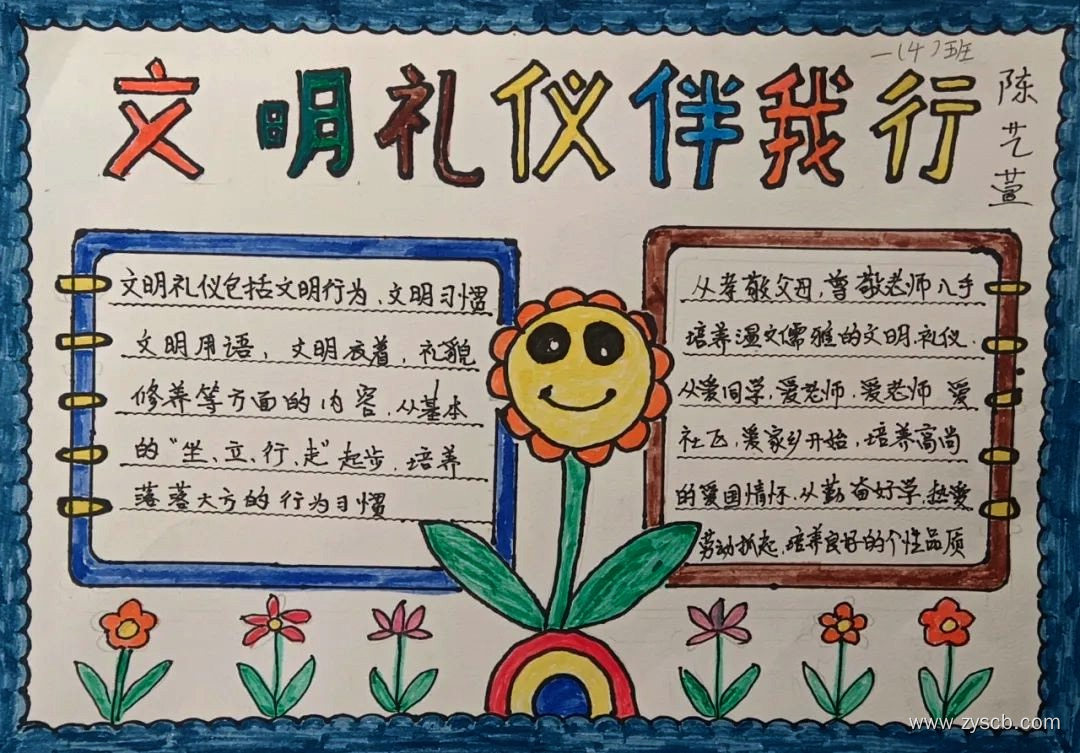 一(4)班
文明礼仪伴我行
陈艺萱
文明礼仪包括文明行为,文明习惯
文明用语,文明衣着,礼貌
修养等方面的内容,从基本
的"坐、立、行、走"起步,培养
落落大方的行为习惯
从孝敬父母,尊敬老师入手
培养温文儒雅的文明礼仪.
从爱同学,爱老师,爱老师 爱
社飞,爱家乡开始,培养高尚
的爱国情怀.从勤奋好学,热爱
劳动抓起,培养良好的个性品质
www.zyscb.com